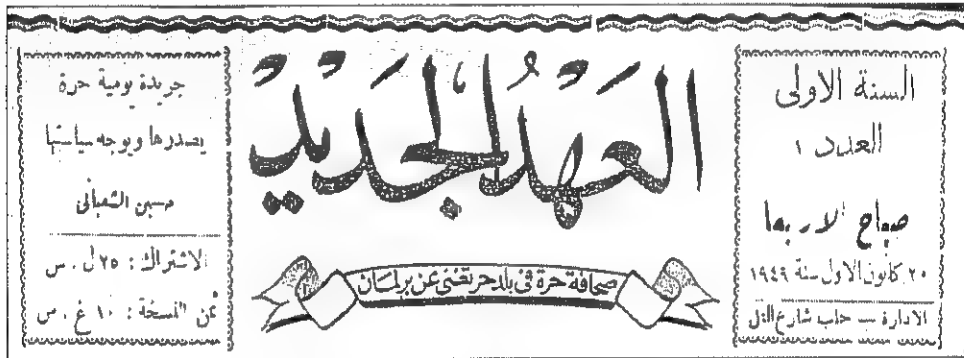 السنة الاولى
العدد ١
صباح الاربعا
٢٠ كانون الاول سنة ١٩٤٩
الادارة ــ حلب شارع التل
العهد الجديد
صحافة حرة في بلد حر تغني عن برلمان
جريدة يومية حرة
يصدرها ويوجه سياستها
حسين الشعباني
الاشتراك : ٢٥ ل . س
ثمن النسخة : ١٠ غ . س